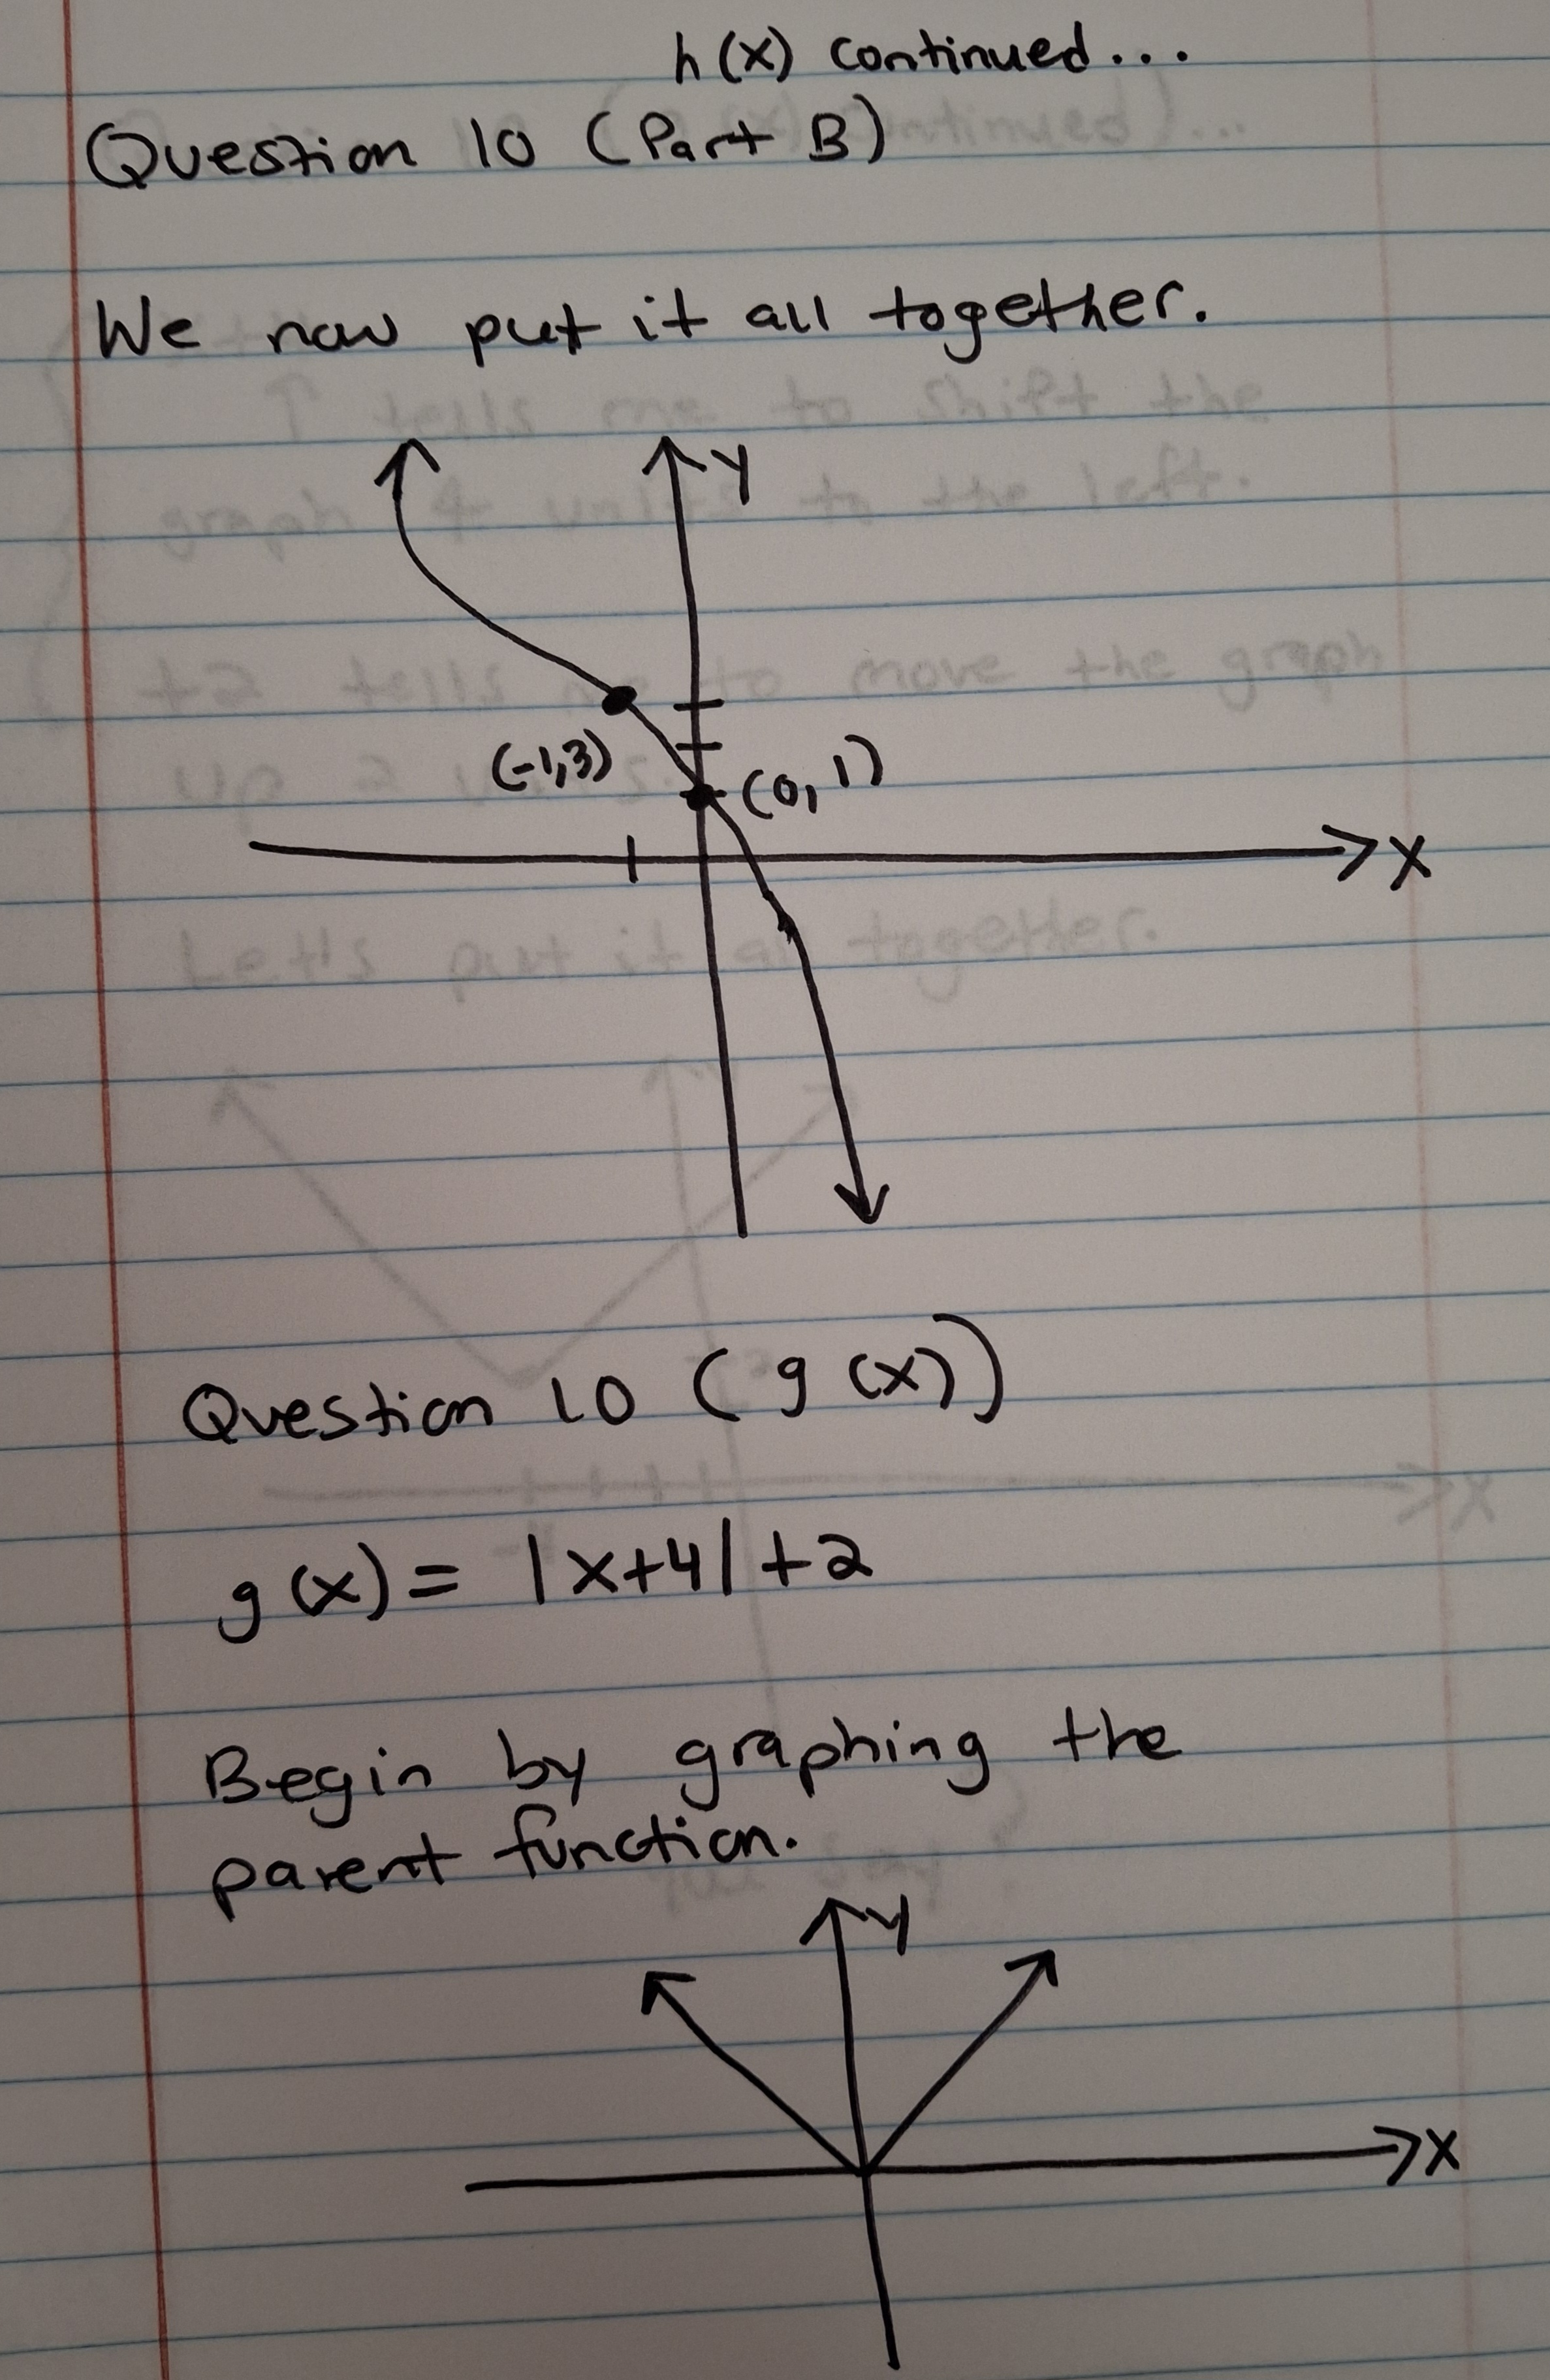 h(x) continued...
Question 10 (Part B)
We now put it all together.
Y
(-1,3)
(0, 1)
X
Question 10 (g(x))
g(x) = |x+4| +2
Begin by graphing the
parent function.
Y
X